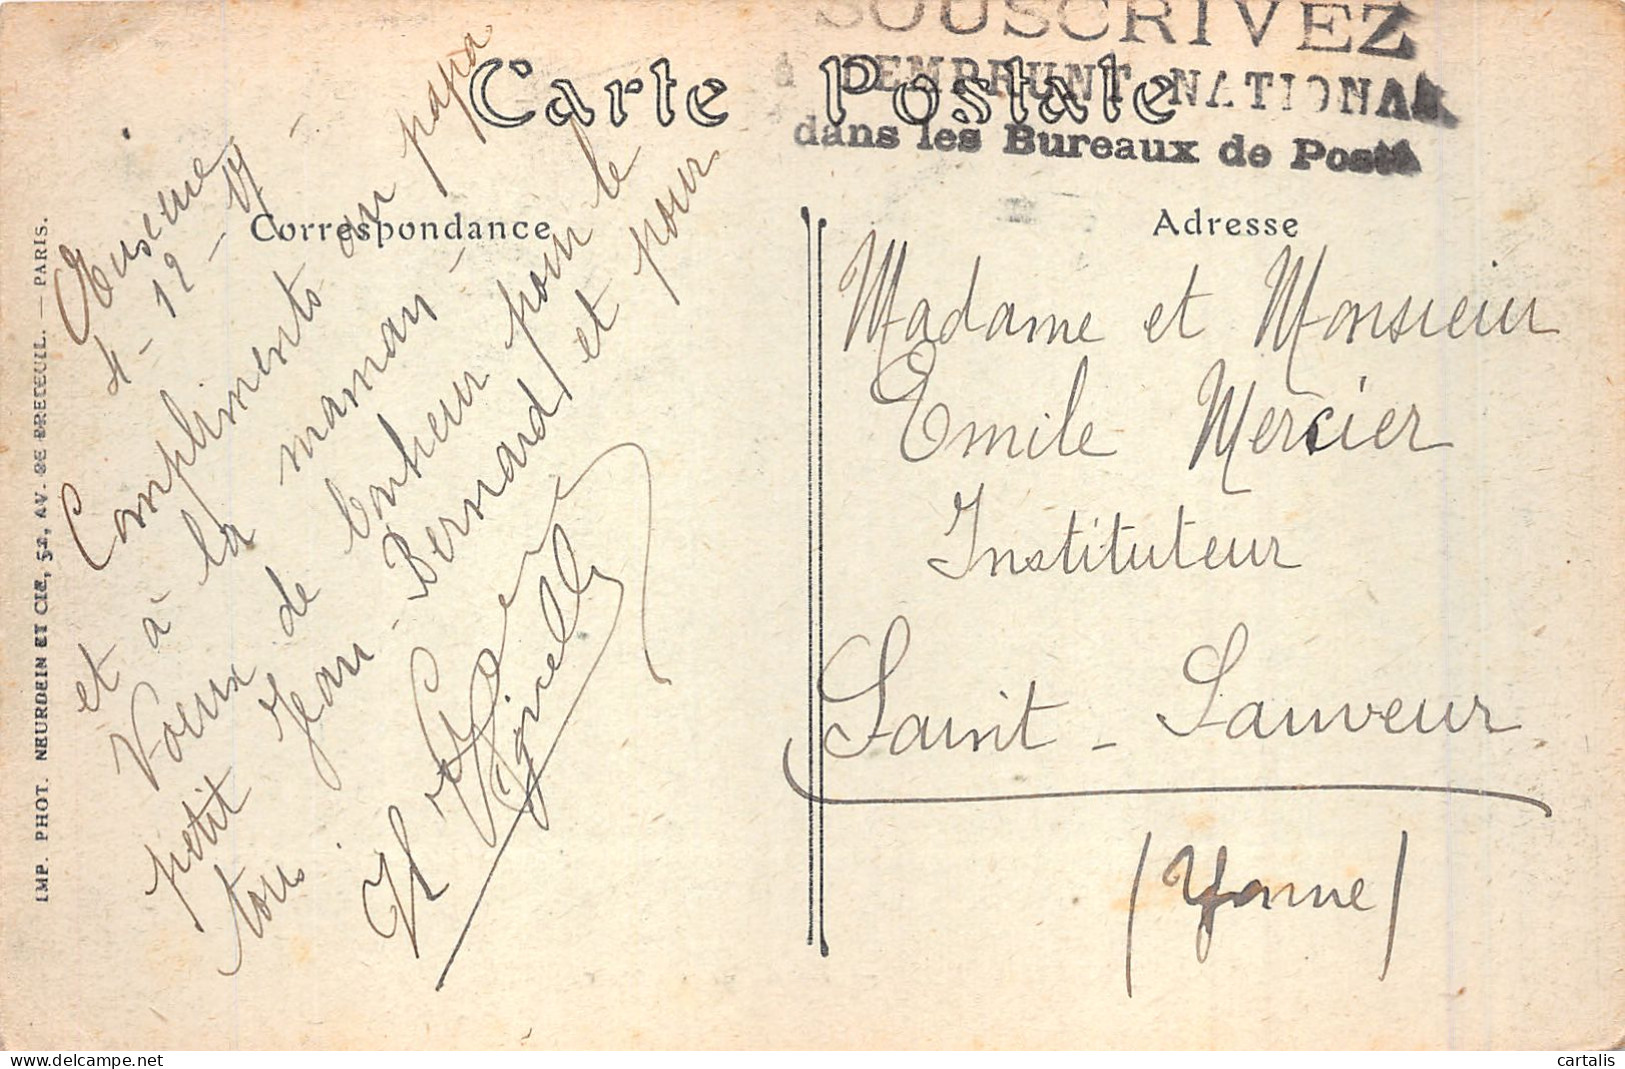 SOUSCRIVEZ
à L'EMPRUNT NATIONAL
dans les Bureaux de Poste
Carte Postale
Correspondance
Adresse
4-12-17
Compliments au papa
et à la maman -
Voeux de bonheur pour le
petit Jean-Bernard et pour
tous.
Madame et Monsieur
Emile Mercier
Instituteur
Saint-Sauveur
(Yonne)
IMP. PHOT. NEURDEIN ET CIE, 52, AV. DE BRETEUIL. — PARIS.
cartalis
delcampe.net